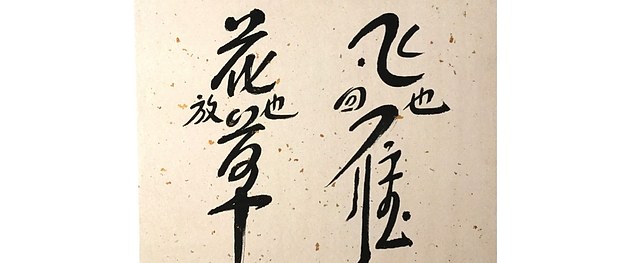 飞
回也
雁
花
放也
草